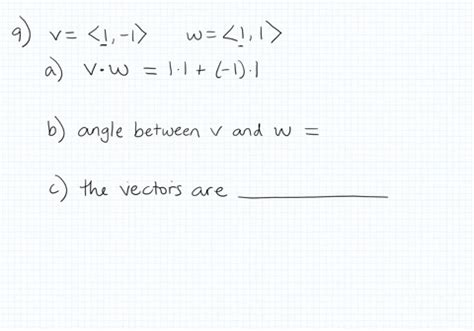 9) v = <1, -1> w = <1, 1>
a) v · w = 1·1 + (-1)·1
b) angle between v and w =
c) the vectors are ________